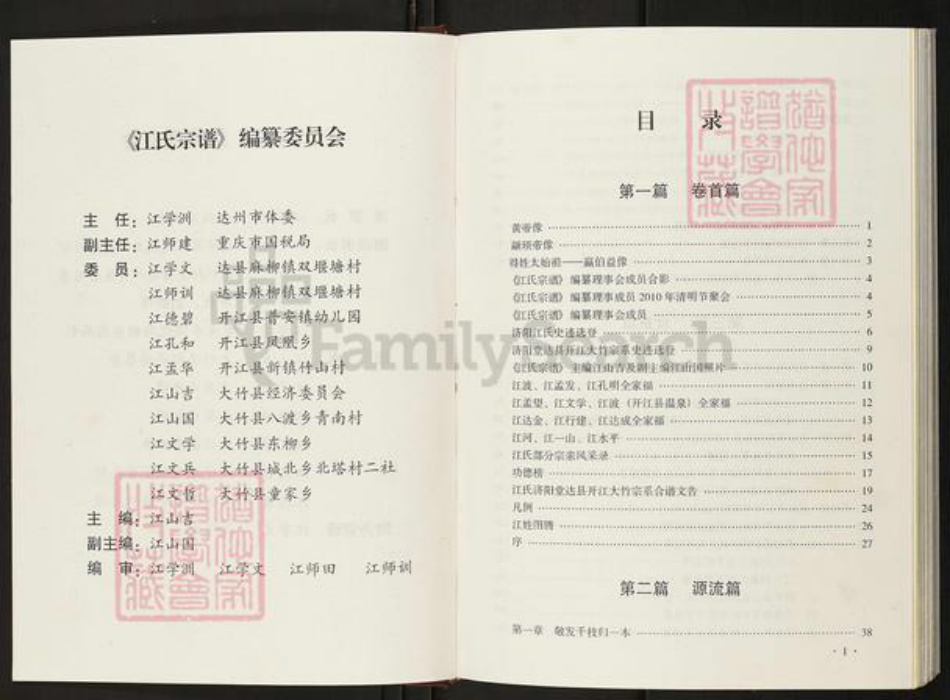 《江氏宗谱》编纂委员会
主 任：江学洲 达州市体委
副主任：江师建 重庆市国税局
委 员：江学文 达县麻柳镇双堰塘村
江师训 达县麻柳镇双堰塘村
江德碧 开江县普安镇幼儿园
江孔和 开江县凤凰乡
江孟华 开江县新镇竹山村
江山吉 大竹县经济委员会
江山国 大竹县八渡乡青南村
江文学 大竹县东柳乡
江文兵 大竹县城北乡北塔村二社
江文哲 大竹县童家乡
主 编：江山吉
副主编：江山国
编 审：江学洲 江学文 江师田 江师训
目 录
第一篇 卷首篇
黄帝像 1
颛顼帝像 2
得姓太始祖——嬴伯益像 3
《江氏宗谱》编纂理事会成员合影 4
《江氏宗谱》编纂理事成员2010年清明节聚会 4
《江氏宗谱》编纂理事会成员 5
济阳江氏史迹选登 6
济阳堂达县开江大竹宗系史迹选登 9
《江氏宗谱》主编江山吉及副主编江山国照片 10
江波、江孟发、江孔明全家福 11
江孟望、江文学、江波（开江县温泉）全家福 12
江达金、江行建、江达成全家福 13
江河、江一山、江水平 14
江氏部分宗亲风采录 15
功德榜 17
江氏济阳堂达县开江大竹宗系合谱文告 19
凡例 24
江姓图腾 26
序 27
第二篇 源流篇
第一章 敬发千枝归一本 38
· 1 ·
FamilySearch